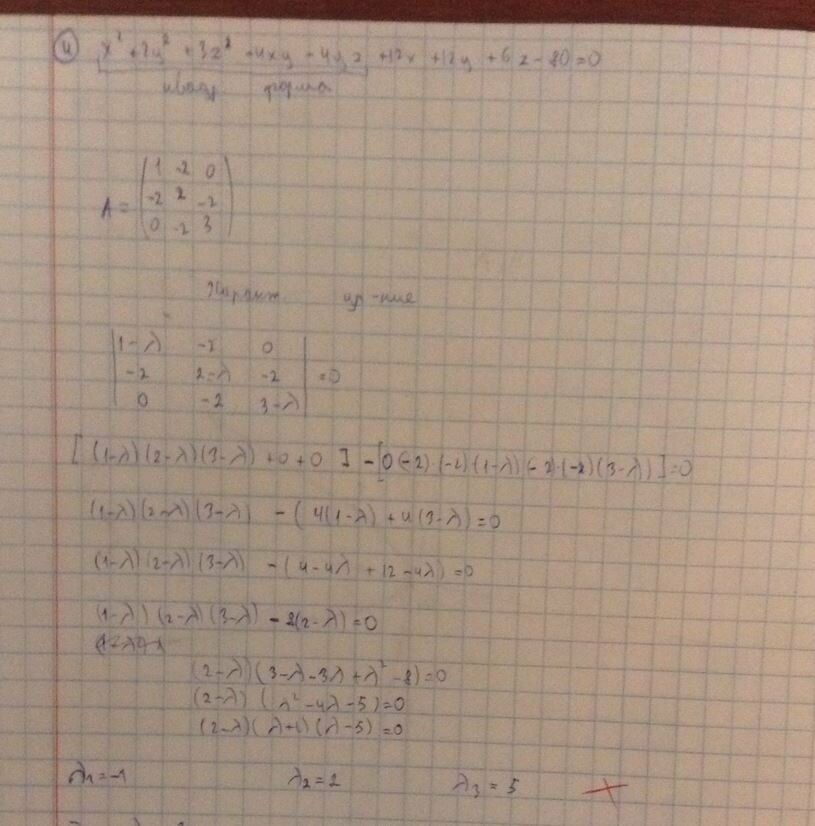 ④ x² + 2y² + 3z² - 4xy - 4yz + 12x + 12y + 6z - 80 = 0
квадр форма
A = (1 -2 0
-2 2 -2
0 -2 3)
Характ. ур-ние
|1-λ -2 0|
|-2 2-λ -2| = 0
|0 -2 3-λ|
[(1-λ)(2-λ)(3-λ) + 0 + 0] - [0 (-2)·(-2)·(1-λ) (-2)·(-2)(3-λ)] = 0
(1-λ)(2-λ)(3-λ) - (4(1-λ) + 4(3-λ) = 0
(1-λ)(2-λ)(3-λ) - (4-4λ + 12-4λ) = 0
(1-λ)(2-λ)(3-λ) - 8(2-λ) = 0
(2-λ)(3-λ-3λ+λ²-8) = 0
(2-λ)(λ²-4λ-5) = 0
(2-λ)(λ+1)(λ-5) = 0
λ₁ = -1 λ₂ = 2 λ₃ = 5